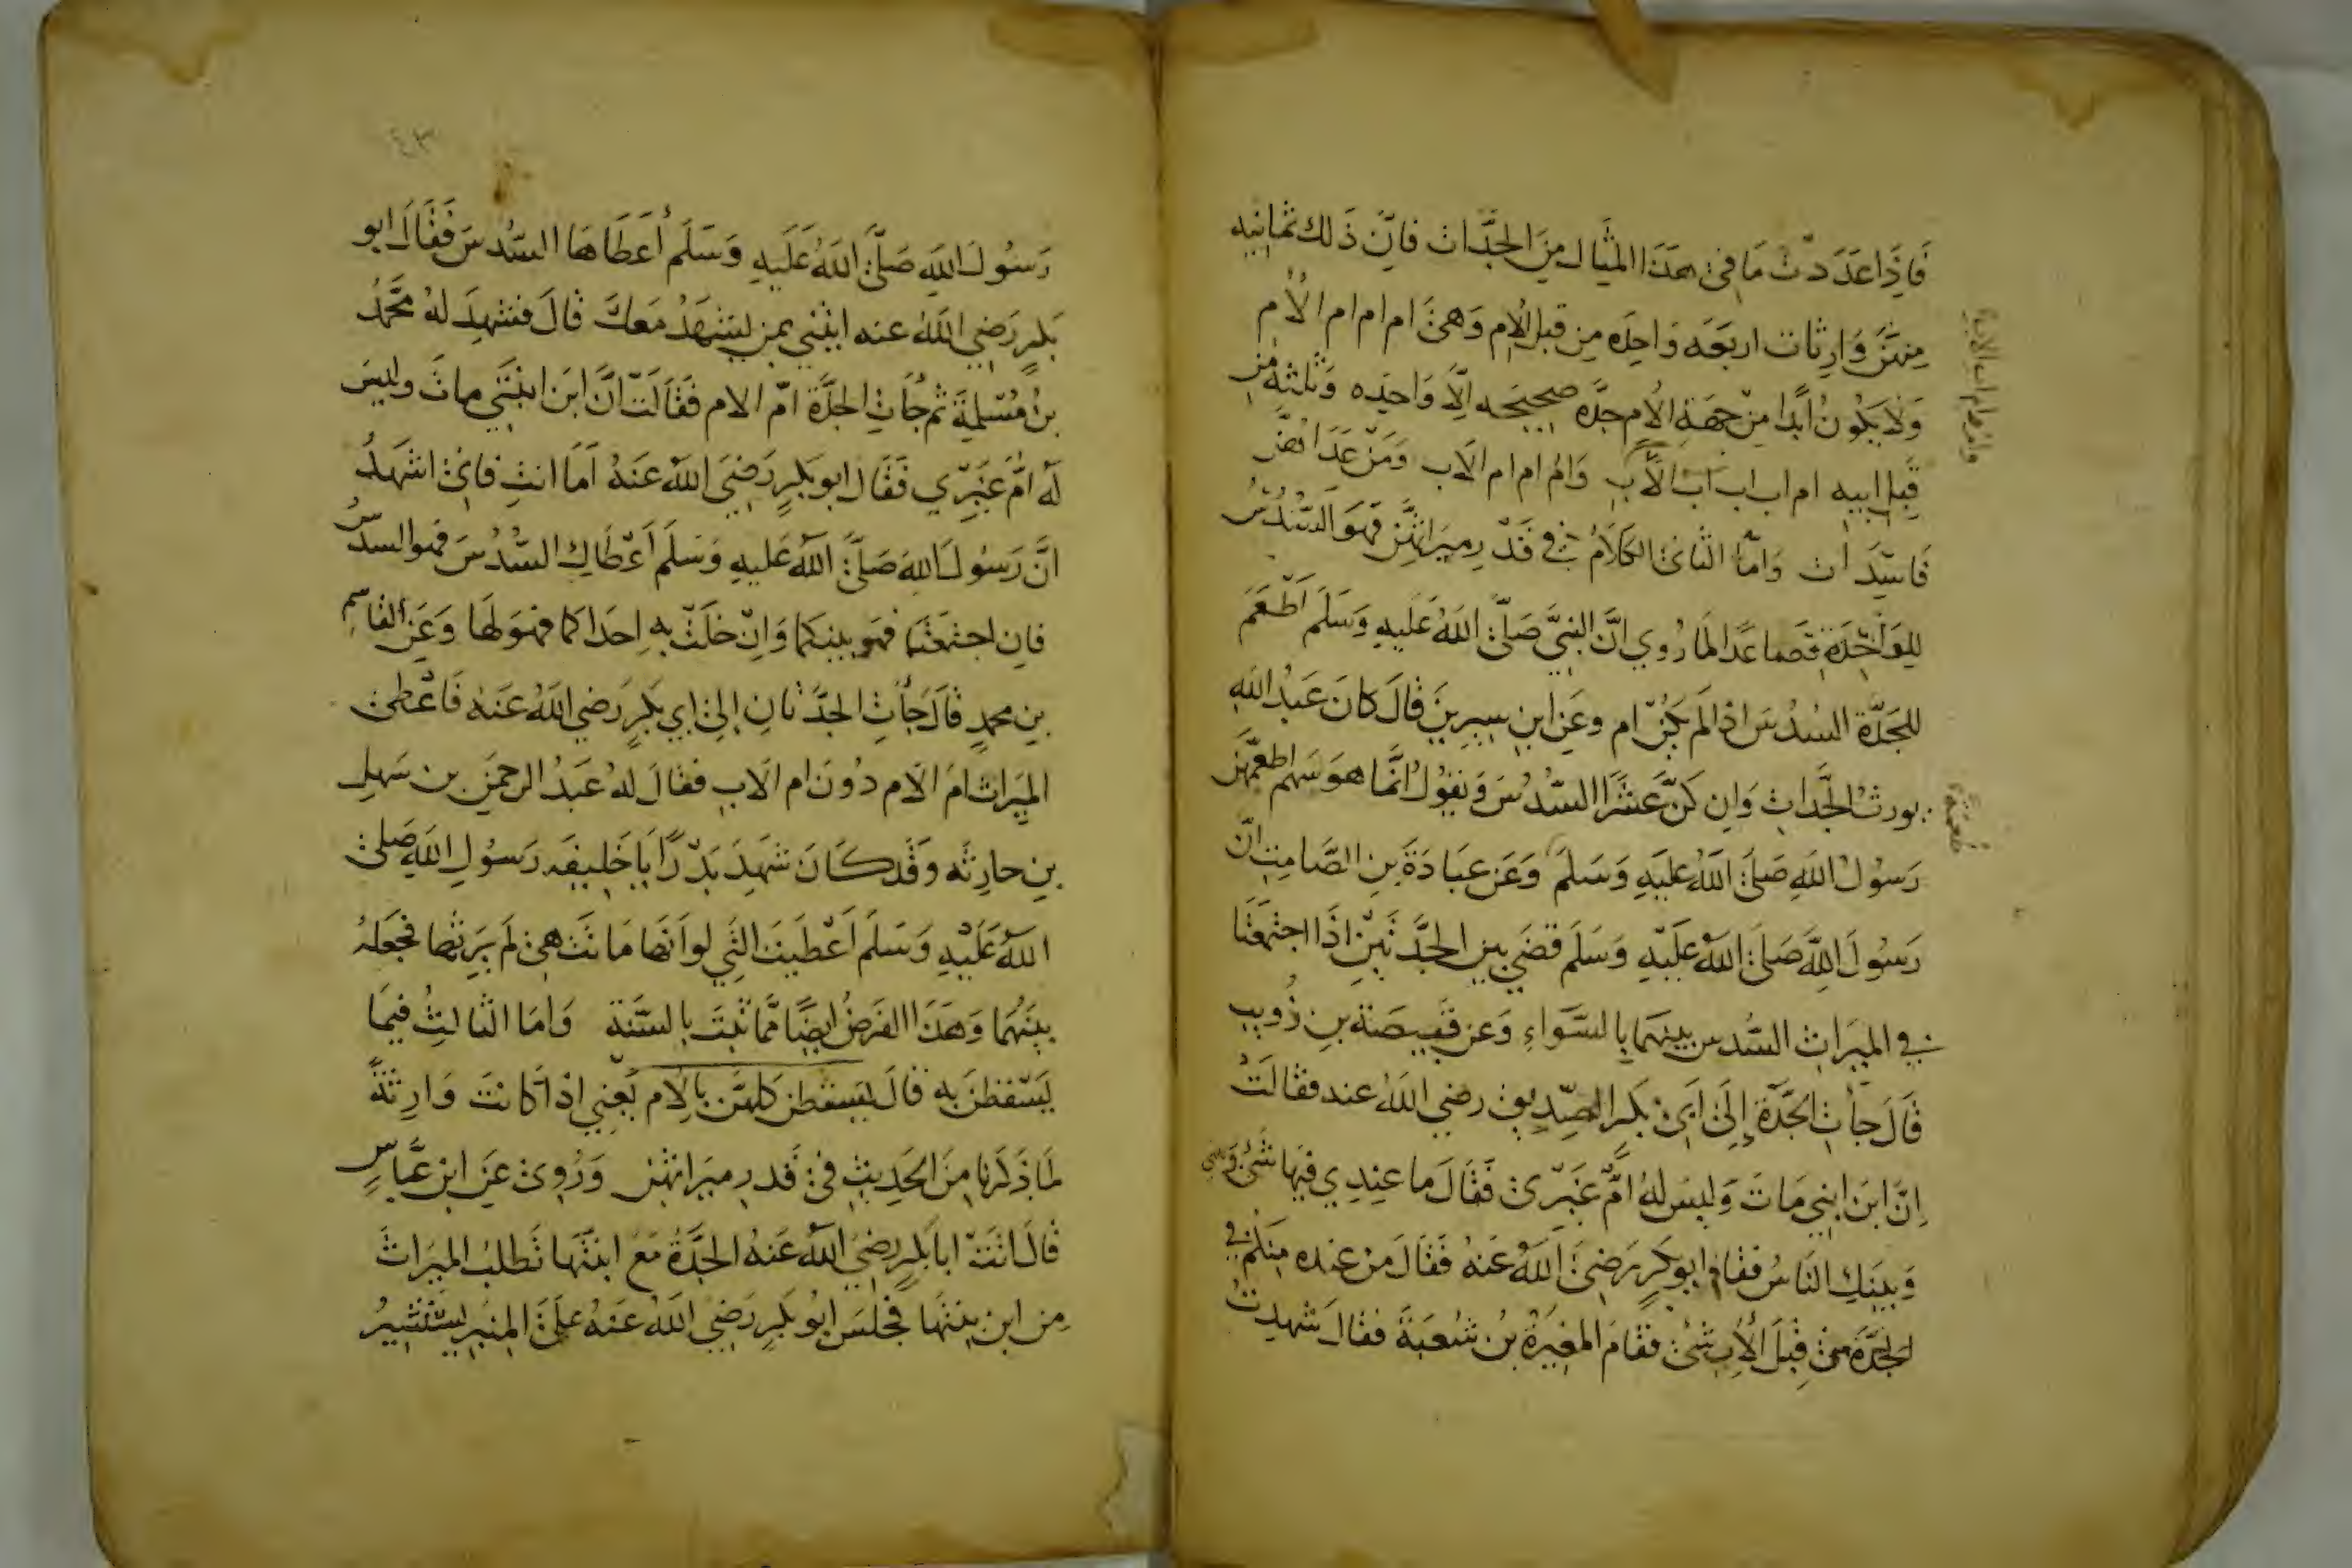 فَاِذَا عَدَدتَّ مَا فى هذا المثال من الجدّات فانّ ذلك ثمانيه
منهنّ وارثات اربعه واحده من قبل الأم وهى ام ام ام ام الأم
ولا يكون أبدا من جهة الأم جدّه صحيحه الّا واحده وثلثه من
قبل ابيه ام اب اب اب الأب وام ام ام ام الاب ومن عداهنّ
فاسدات وامّا الثانى الكلام فى قدر ميراثهنّ فهو السدس
للواحدة فصاعدا لما روي انّ النبيّ صلّى الله عليه وسلم اطعم
للجدّة السدس اذا لم يكن ام وعن ابن سيرين قال كان عبد الله
يورث الجدات وان كنّ عشرا السدس ويقول انّما هو سهم اطعمهنّ
رسول الله صلى الله عليه وسلم وعن عبادة بن الصامت انّ
رسول الله صلى الله عليه وسلم قضي بين الجدّتين اذا اجتمعتا
في الميراث السدس بينهما بالسّواءِ وعن قبيصة بن ذويب
قال جأت الجدّة إلى ابى بكر الصّديق رضي الله عنه فقالت
انّ ابن ابني مات وليس له امّ غيرى فقال ما عندي فيها شئ
وبينك الناس فقام ابو بكر رضى الله عنه فقال من عنده منكم في
الجدّة من قبل الأب شئ فقام المغيرة بن شعبة فقال شهدت
وام ام اب الاب
٤٣
رسول الله صلّى الله عليه وسلم أعطاها السّدس فقال ابو
بكرٍ رضي الله عنه ايتني بمن يشهد معك قال فشهد له محمّد
بن مسلمة ثم جأت الجدّة امّ الام فقالت انّ ابن ابنتي مات وليس
له امّ غيري فقال ابو بكرٍ رضي الله عنه اما انت فانى اشهد
انّ رسول الله صلّى الله عليه وسلم اعطاكِ السّدس فهو السدس
فان اجتمعتما فهو بينكما وان خلت به احداكما فهو لها وعن القاسم
بن محمدٍ قال جأت الجدّتان إلى ابي بكرٍ رضي الله عنه فاعطى
الميراث ام الام دون ام الاب فقال له عبد الرحمن بن سهل
بن حارثه وقد كان شهد بدرًا يا خليفه رسول الله صلى
الله عليه وسلم اعطيت التي لو انها ماتت هى لم يرثها فجعله
بينهما وهذا الفرض ايضًا ممّا ثبت بالسّنة وامّا الثالث فيما
يسقطن به قال يسقطن كلهنّ بالام يعني اذا كانت وارثة
لما ذكرنا من الحديث فى قدر ميراثهن وروى عن ابن عبّاس
قال اتت ابا بكرٍ رضي الله عنه الجدّة مع ابنتها تطلب الميراث
من ابن بنتها فجلس ابو بكرٍ رضي الله عنه على المنبر يستشير